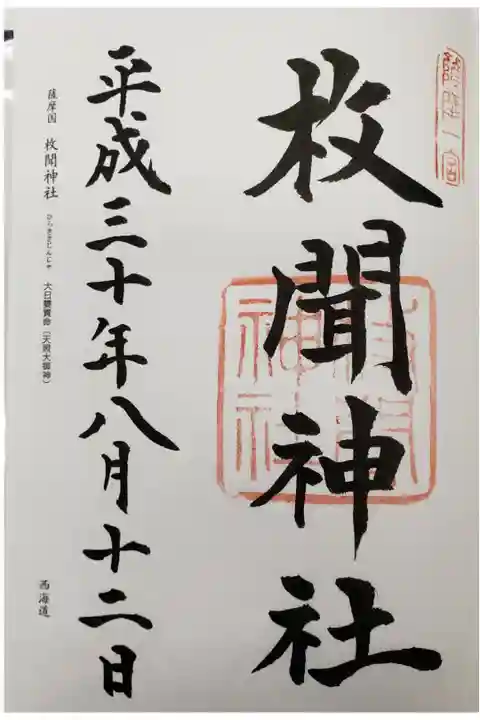 薩摩一宮
枚聞神社
枚聞神社
平成三十年八月十二日
薩摩国 枚聞神社 ひらききじんじゃ 大日孁貴命（天照大御神）
西海道